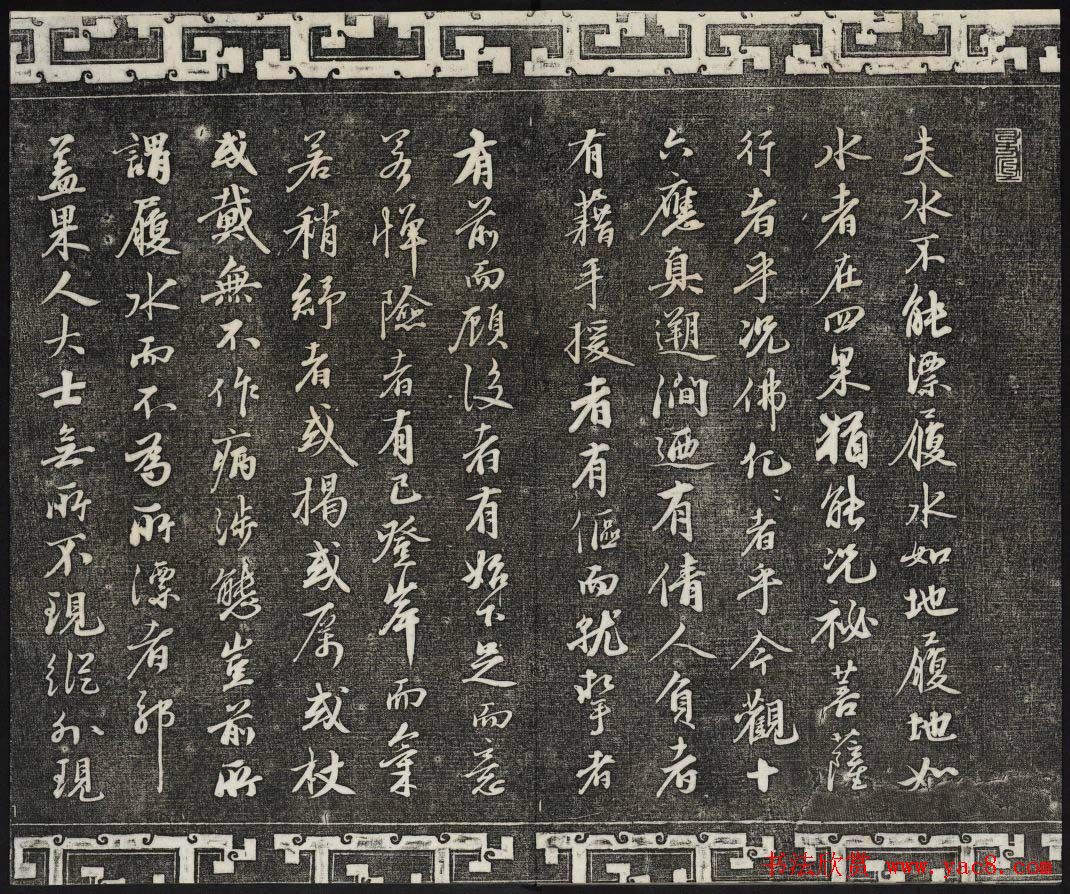 夫水不能漂履水如地履地如
水者在四果猶能況祕菩薩
行者乎況佛化、者乎今觀十
六應真遡澗迺有倩人負者
有藉手援者有傴而就掔者
有前而顧後者有始下足而意
若憚險者有已登岸而氣
若稍紓者或揭或厲或杖
或戴無不作病涉態豈前所
謂履水而不為所漂者耶
蓋果人大士無所不現縱外現
书法欣赏 www.yac8.com